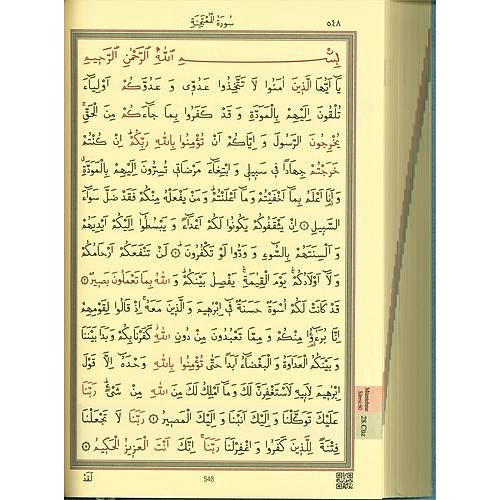 ٥٤٨ سُورَةُ الْمُمْتَحِنَةِ
بِسْمِ اللّٰهِ الرَّحْمٰنِ الرَّحِيمِ
يَٓا اَيُّهَا الَّذِينَ اٰمَنُوا لَا تَتَّخِذُوا عَدُوِّى وَ عَدُوَّكُمْ اَوْلِيَٓاءَ
تُلْقُونَ اِلَيْهِمْ بِالْمَوَدَّةِ وَ قَدْ كَفَرُوا بِمَا جَٓاءَكُمْ مِنَ الْحَقِّۚ
يُخْرِجُونَ الرَّسُولَ وَ اِيَّاكُمْ اَنْ تُؤْمِنُوا بِاللّٰهِ رَبِّكُمْۜ اِنْ كُنْتُمْ
خَرَجْتُمْ جِهَادًا فِى سَبِيلِى وَ ابْتِغَٓاءَ مَرْضَاتِى تُسِرُّونَ اِلَيْهِمْ بِالْمَوَدَّةِۗ
وَ اَنَا۬ اَعْلَمُ بِمَٓا اَخْفَيْتُمْ وَ مَٓا اَعْلَنْتُمْۜ وَ مَنْ يَفْعَلْهُ مِنْكُمْ فَقَدْ ضَلَّ سَوَٓاءَ
السَّبِيلِ ١ اِنْ يَثْقَفُوكُمْ يَكُونُوا لَكُمْ اَعْدَٓاءً وَ يَبْسُطُٓوا اِلَيْكُمْ اَيْدِيَهُمْ
وَ اَلْسِنَتَهُمْ بِالسُّٓوءِ وَ وَدُّوا لَوْ تَكْفُرُونَۜ ٢ لَنْ تَنْفَعَكُمْ اَرْحَامُكُمْ
وَ لَٓا اَوْلَادُكُمْۚ يَوْمَ الْقِيٰمَةِۚ يَفْصِلُ بَيْنَكُمْۜ وَ اللّٰهُ بِمَا تَعْمَلُونَ بَصِيرٌ ٣
قَدْ كَانَتْ لَكُمْ اُسْوَةٌ حَسَنَةٌ فِٓى اِبْرٰهِيمَ وَ الَّذِينَ مَعَهُۚ اِذْ قَالُوا لِقَوْمِهِمْ
اِنَّا بُرَءٰٓؤُ۬ا مِنْكُمْ وَ مِمَّا تَعْبُدُونَ مِنْ دُونِ اللّٰهِۘ كَفَرْنَا بِكُمْ وَ بَدَا بَيْنَنَا
وَ بَيْنَكُمُ الْعَدَاوَةُ وَ الْبَغْضَٓاءُ اَبَدًا حَتّٰى تُؤْمِنُوا بِاللّٰهِ وَحْدَهُٓ اِلَّا قَوْلَ
اِبْرٰهِيمَ لِاَبِيهِ لَاَسْتَغْفِرَنَّ لَكَ وَ مَٓا اَمْلِكُ لَكَ مِنَ اللّٰهِ مِنْ شَىْءٍۜ رَبَّنَا
عَلَيْكَ تَوَكَّلْنَا وَ اِلَيْكَ اَنَبْنَا وَ اِلَيْكَ الْمَصِيرُ ٤ رَبَّنَا لَا تَجْعَلْنَا
فِتْنَةً لِلَّذِينَ كَفَرُوا وَ اغْفِرْلَنَا رَبَّنَاۚ اِنَّكَ اَنْتَ الْعَزِيزُ الْحَكِيمُ ٥
Mümtehine
Sûresi:60
28.Cüz
548
لَقَدْ